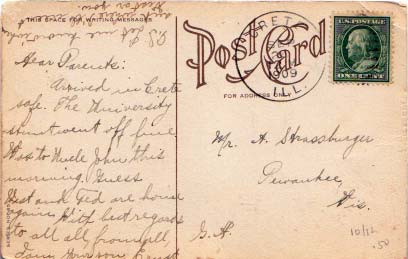 THIS SPACE FOR WRITING MESSAGES
Post Card
FOR ADDRESS ONLY
U.S. POSTAGE
ONE CENT
1909
ILL.
Dear Parents:
Arrived in Crete
safe. The University
stunt went off fine
Went to Uncle John this
morning. Guess
and Ted are home
again. With best regards
to all from all,
Your son Ernst
P.S.
let me know
Mr. A. Strassburger
Pewaukee,
Wis.
10/12
.50